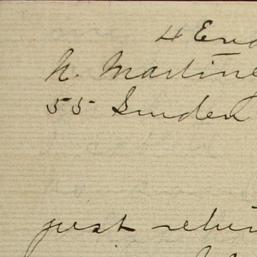 4 End
N. Martine
55 Linden
just retur